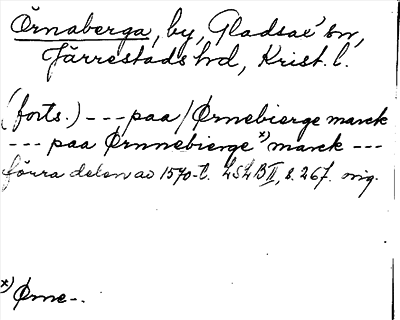 Örnaberga, by, Gladsax' sn,
Järrestads hd, Krist. l.
(forts.) --- paa / Ørnebierge marck
--- paa Ørnnebierge x) marck ---
förra delen av 1570-t. LSLB II, s. 267. orig.
x) Ørne-.